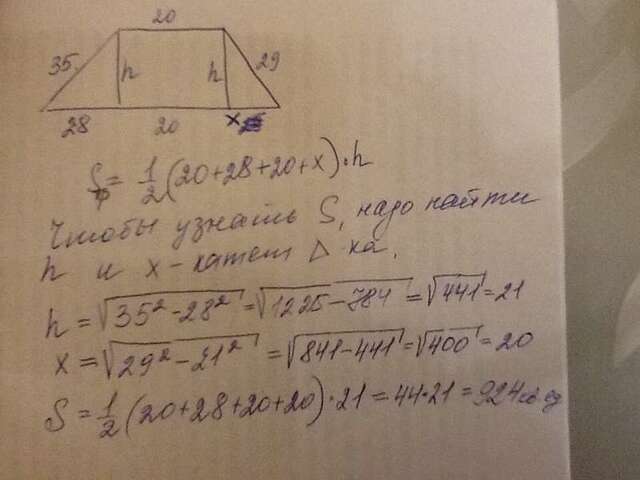 20
35 h h 29
28 20 x
S = 1/2 (20+28+20+x)·h
Чтобы узнать S, надо найти
h и x-катет △ ка.
h = √35²-28² = √1225-784 = √441 = 21
x = √29²-21² = √841-441 = √400 = 20
S = 1/2 (20+28+20+20)·21 = 44·21 = 924 кв ед